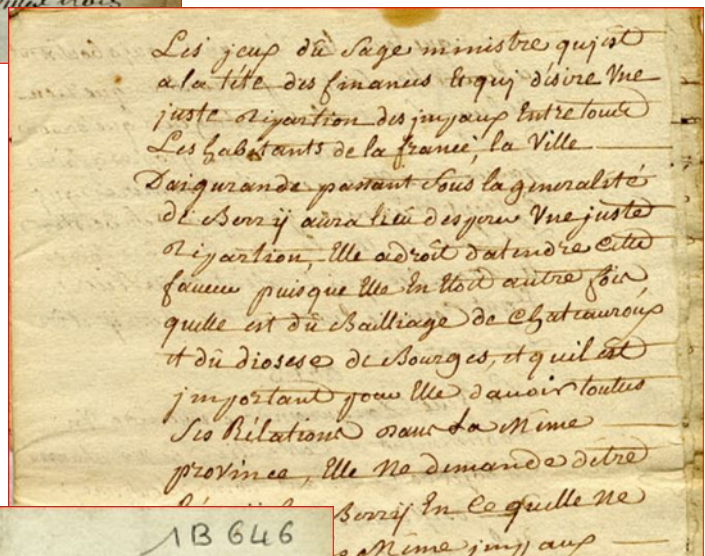 Les jeux du sage ministre quj est
a la tête des finances Et quj désire Vne
juste répartion des jmpaux Entre toute
Les habitants de la france, la Ville
Daigurande passant sous la generalité
de Berrij aura lieu desperer Vne juste
répartion, Elle adroit datendre Cette
faveur puisque Elle En Etoit autre fois
quelle est du Bailliage de Chateauroux
et du diosese de Bourges, et quil est
jmportant pour Elle davoir toutes
Ses Rélations dans La Même
province, Elle Ne demande dêtre
Berrij En Ce quelle Ne
Même jmpaux
1B 646